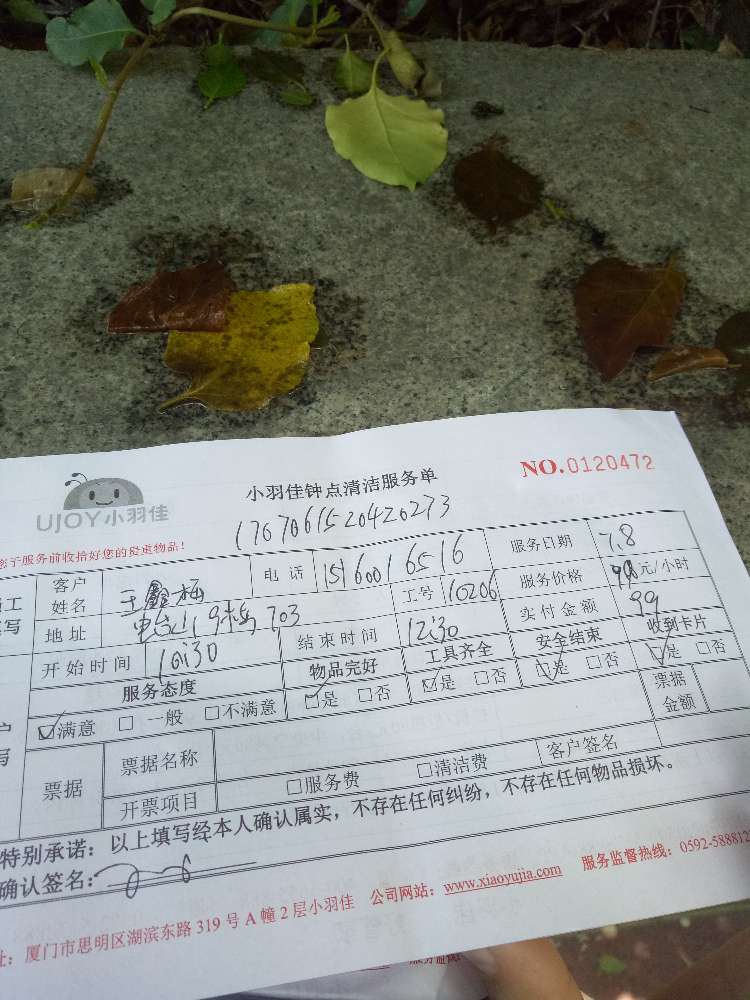 NO.0120472
UJOY小羽佳
小羽佳钟点清洁服务单
1707061520420273
您于服务前收拾好您的贵重物品!
客户姓名 王鑫梅 电话 15160016516 服务日期 7.8
地址 9栋 703 工号 10206 服务价格 元/小时
开始时间 10:30 结束时间 12:30 实付金额 99
服务态度 物品完好 工具齐全 安全结束 收到卡片
☑满意 □一般 □不满意 ☑是 □否 ☑是 □否 ☑是 □否 ☑是 □否
票据 票据名称 票据金额
开票项目 □服务费 □清洁费 客户签名
特别承诺:以上填写经本人确认属实,不存在任何纠纷,不存在任何物品损坏。
确认签名:
址:厦门市思明区湖滨东路319号A幢2层小羽佳 公司网站:www.xiaoyujia.com 服务监督热线:0592-588812